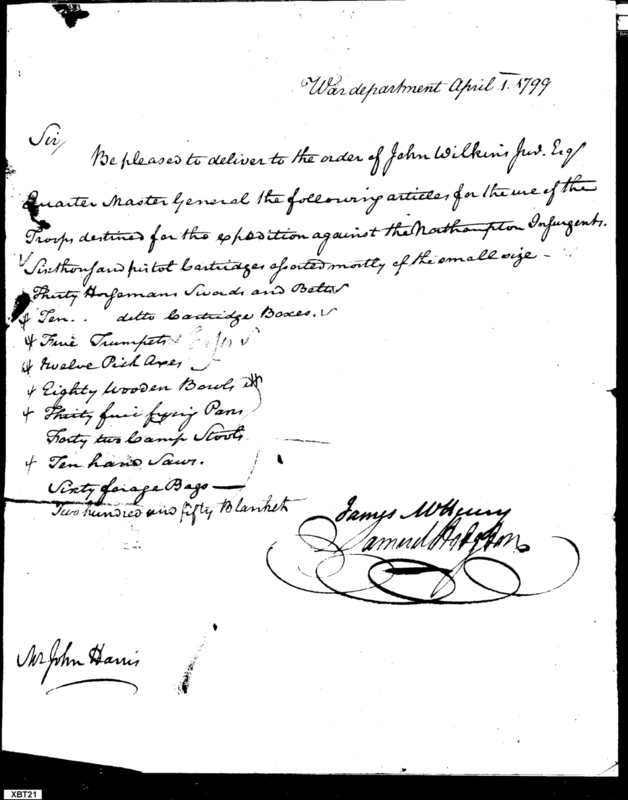 War department April 1. 1799
Sir,
Be pleased to deliver to the order of John Wilkins Jun. Esq
Quarter Master General the following articles for the use of the
Troops destined for the expedition against the Northampton Insurgents.
Six thousand pistol Cartridges assorted mostly of the small size -
Thirty Horsemans Swords and Belts
Ten .. ditto Cartridge Boxes.
Five Trumpets
twelve Pick Axes
Eighty Wooden Bowls
Thirty five frying Pans
Forty two Camp Stools
Ten hand Saws.
Sixty forage Bags —
Two hundred and fifty Blankets
James McHenry
Samuel Hodgdon
Mr John Harris
XBT21